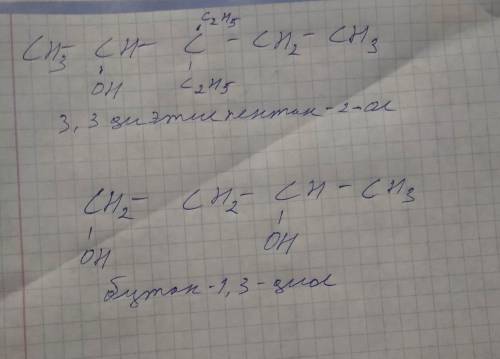 C₂H₅
CH₃ - CH - C - CH₂ - CH₃
OH C₂H₅
3,3 диэтилпентан-2-ол
CH₂ - CH₂ - CH - CH₃
OH OH
бутан-1,3-диол